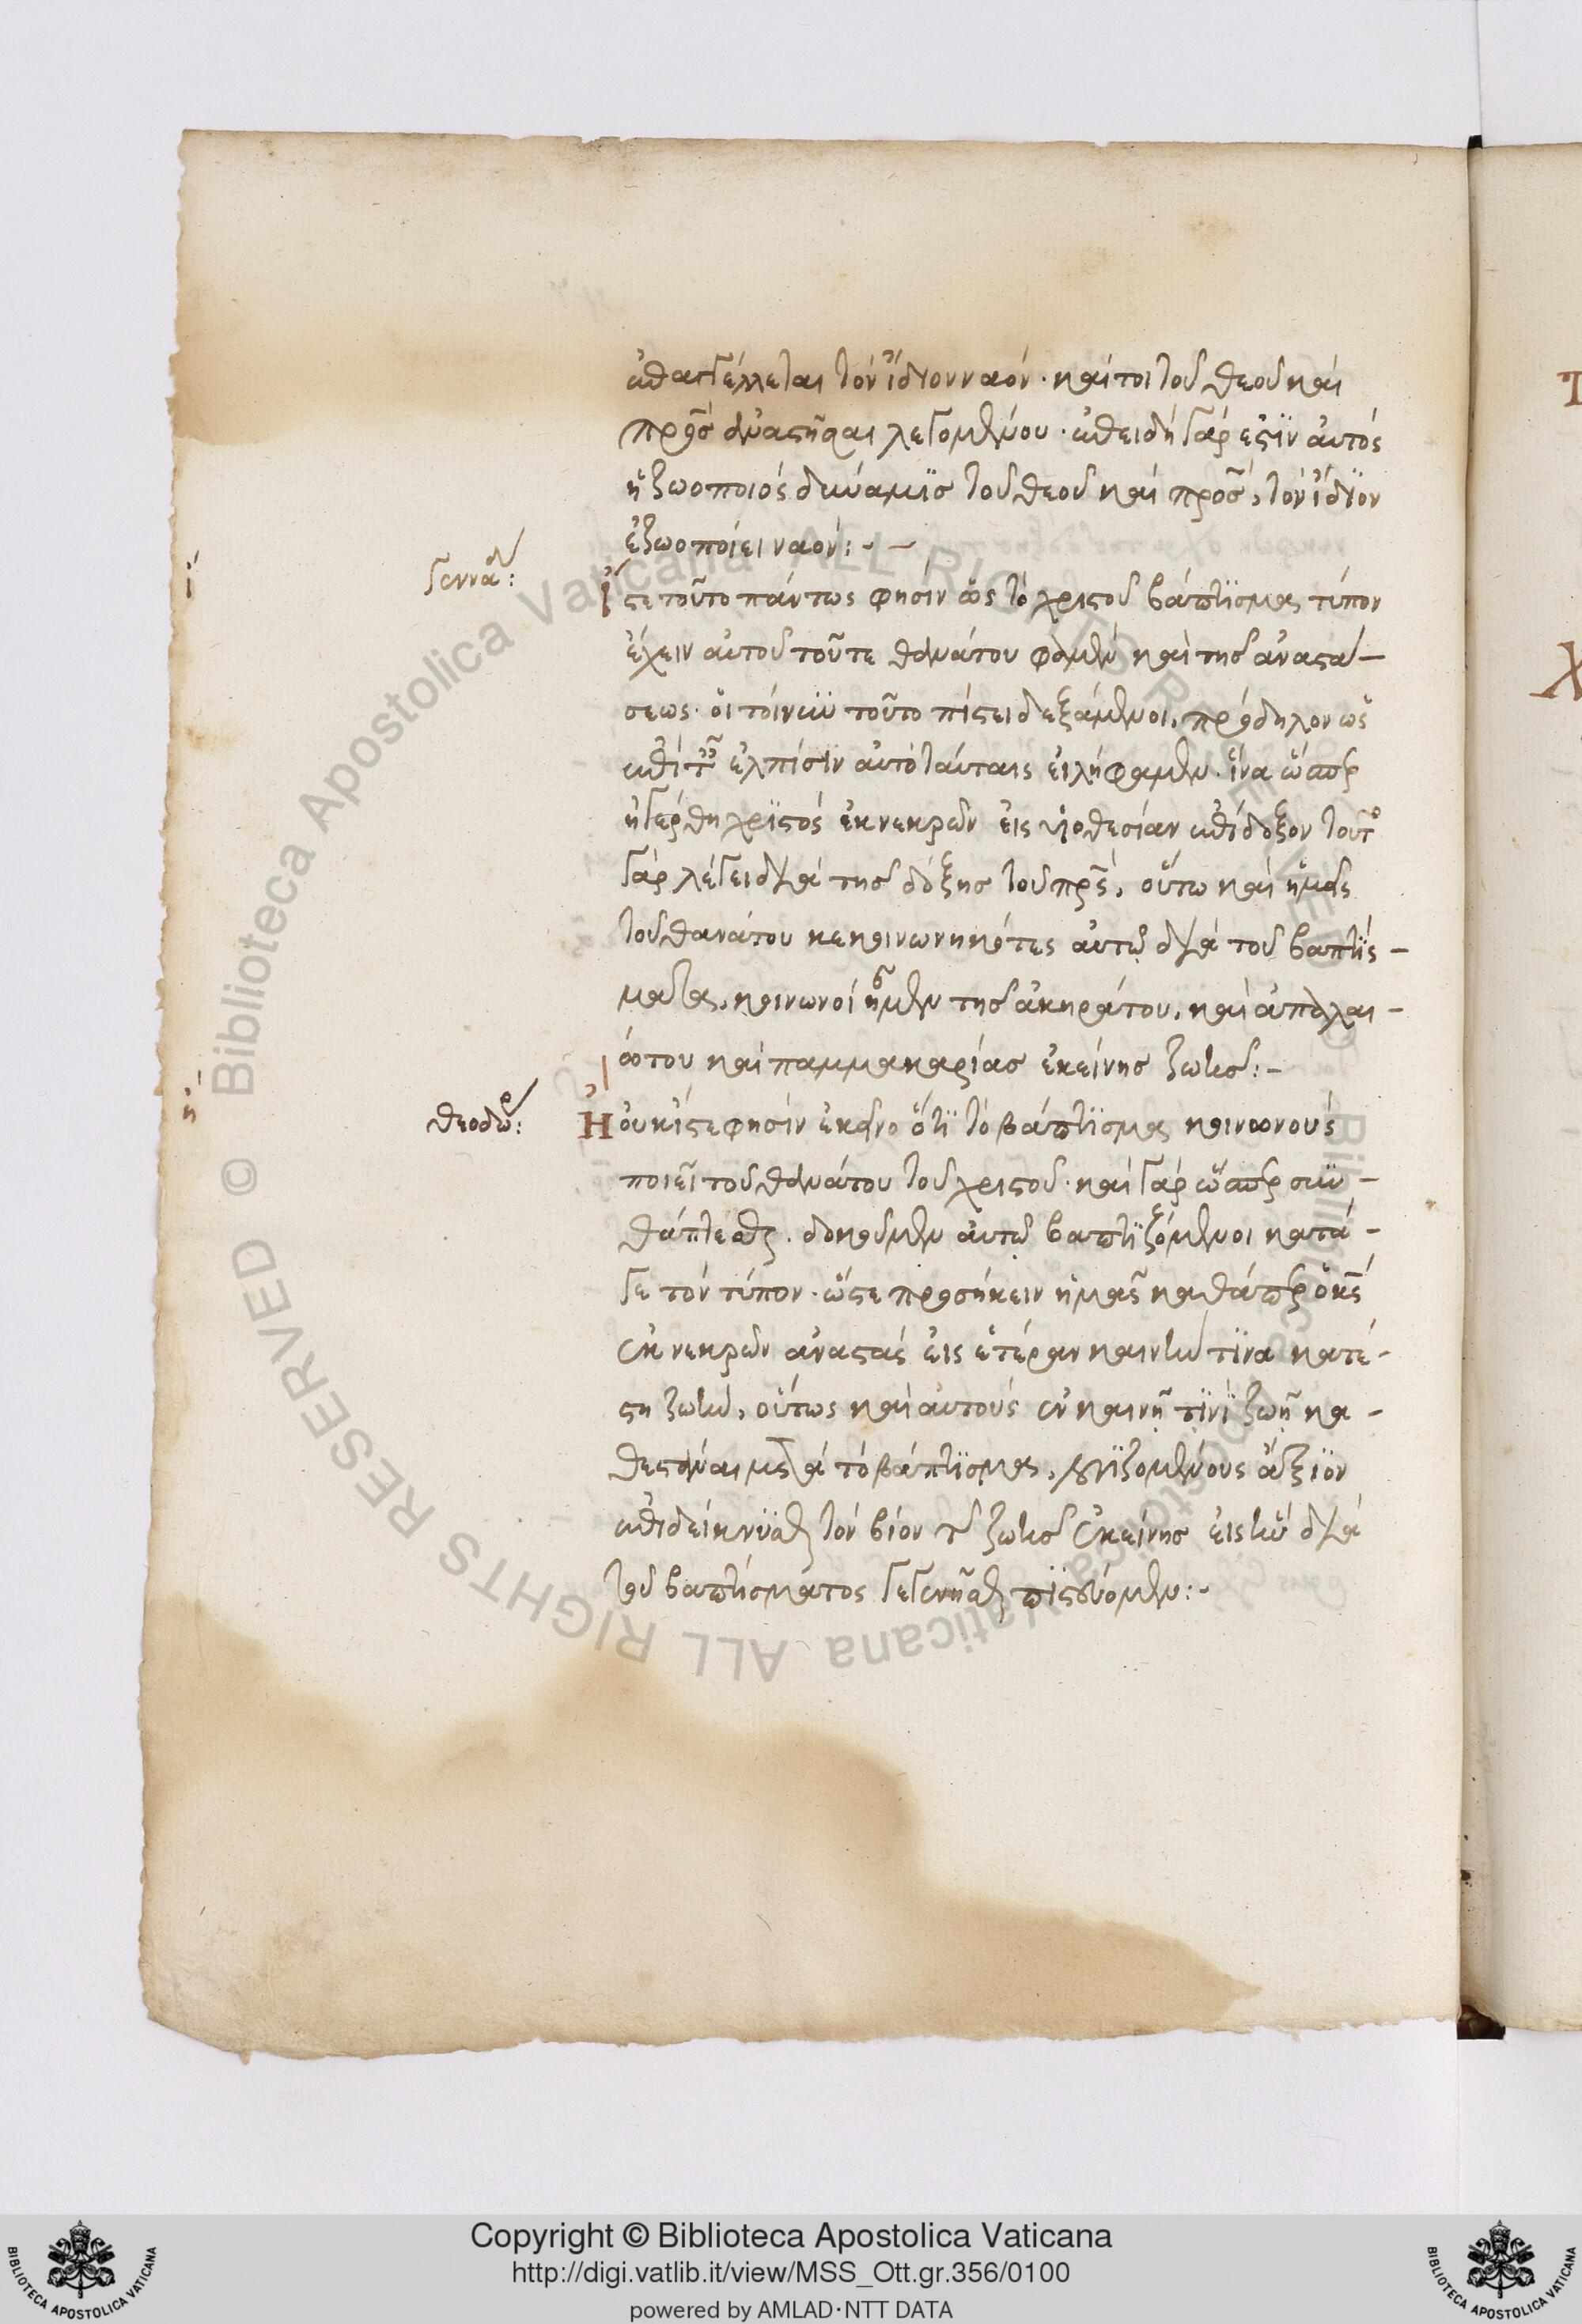 ἐπαγγέλλεται τὸν ἴδιον ναόν· καίτοι τοῦ θεοῦ καὶ
πρσ ἀναστῆσαι λεγομένου· ἐπειδὴ γάρ ἐστιν αὐτὸς
ἡ ζωοποιὸς δύναμις τοῦ θεοῦ καὶ πρσ, τὸν ἴδιον
ἐζωοποίει ναόν:-
γενναδ:
ἴστε τοῦτο πάντως φησὶν ὡς τὸ χριστοῦ βάπτισμα τύπον
ἔχειν αὐτοῦ τοῦ τε θανάτου φαμὲν καὶ τῆς ἀναστά-
σεως· οἱ τοίνυν τοῦτο πίστει δεξάμενοι, πρόδηλον ὡς
ἐπὶ τ ἐλπίσιν αὐτὸ ταύταις εἰλήφαμεν· ἵνα ὥσπερ
ἠγέρθη χριστὸς ἐκ νεκρῶν εἰς υἱοθεσίαν ἐπίδοξον τοῦτο
γὰρ λέγει διὰ τῆς δόξης τοῦ πρς, οὕτω καὶ ἡμεῖς
τοῦ θανάτου κεκοινωνηκότες αὐτῷ διὰ τοῦ βαπτίσ-
ματος, κοινωνοὶ ἦμεν τῆς ἀκηράτου, καὶ ἀπαλαι-
ώτου καὶ παμμακαρίας ἐκείνης ζωῆς:-
θεοδώρ:
Ἢ οὐκ ἴστε φησὶν ἐκεῖνο ὅτι τὸ βάπτισμα κοινωνοὺς
ποιεῖ τοῦ θανάτου τοῦ χριστοῦ· καὶ γὰρ ὥσπερ συν-
θάπτεσθαι δοκοῦμεν αὐτῷ βαπτιζόμενοι κατά-
γε τὸν τύπον· ὥστε προσήκειν ἡμᾶς καθάπερ ὁ κς
ἐκ νεκρῶν ἀναστὰς εἰς ἑτέραν καινὴν τινα κατέ-
στη ζωὴν, οὕτως καὶ αὐτοὺς ἐν καινῇ τινι ζωῇ κα-
θεστάναι μετὰ τὸ βάπτισμα, νομιζομένους ἄξιον
ἐπιδείκνυσθαι τὸν βίον τῆς ζωῆς ἐκείνης εἰς ἣν διὰ
τοῦ βαπτίσματος γεγεννῆσθαι πιστεύομεν:-
ί
ή
Copyright © Biblioteca Apostolica Vaticana
http://digi.vatlib.it/view/MSS_Ott.gr.356/0100
powered by AMLAD·NTT DATA
BIBLIOTECA APOSTOLICA VATICANA
BIBLIOTECA APOSTOLICA VATICANA
© Biblioteca Apostolica Vaticana ALL RIGHTS RESERVED
© Biblioteca Apostolica Vaticana ALL RIGHTS RESERVED